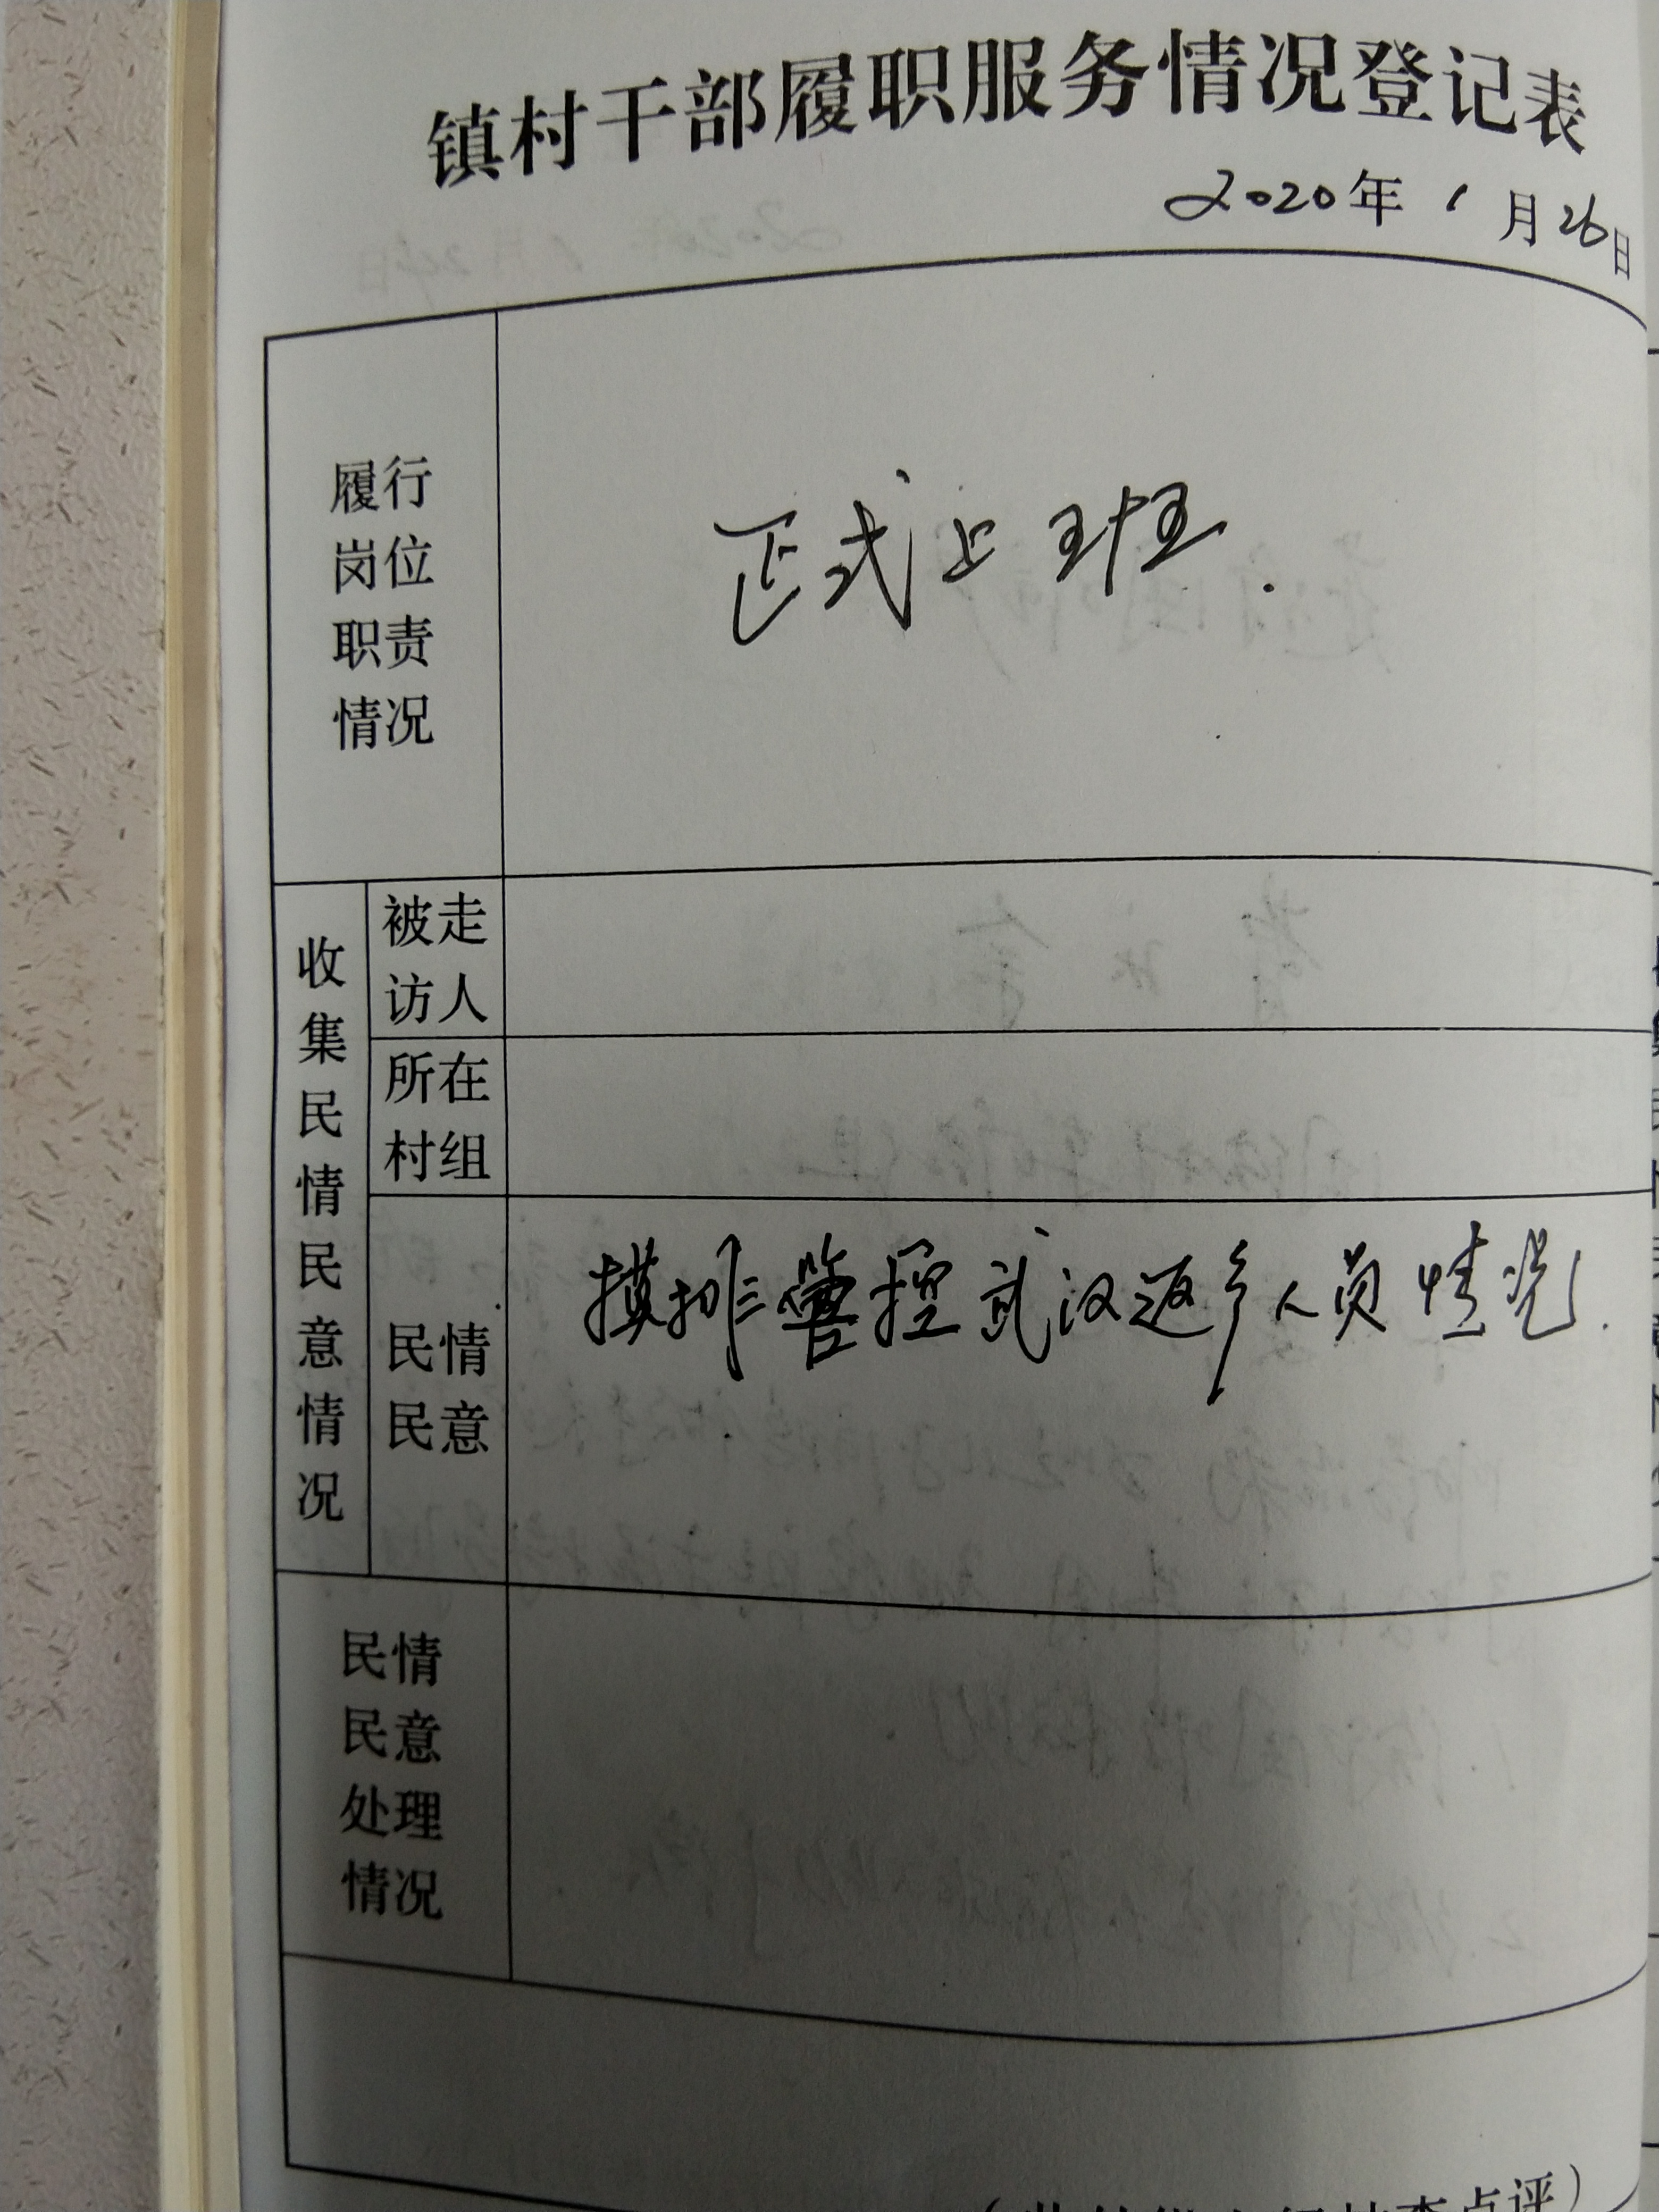 镇村干部履职服务情况登记表
2020年1月26日
履行
岗位
职责
情况
正式上班.
收集民情民意情况
被走
访人
所在
村组
民情
民意
摸排管控武汉返乡人员情况.
民情
民意
处理
情况
点评）